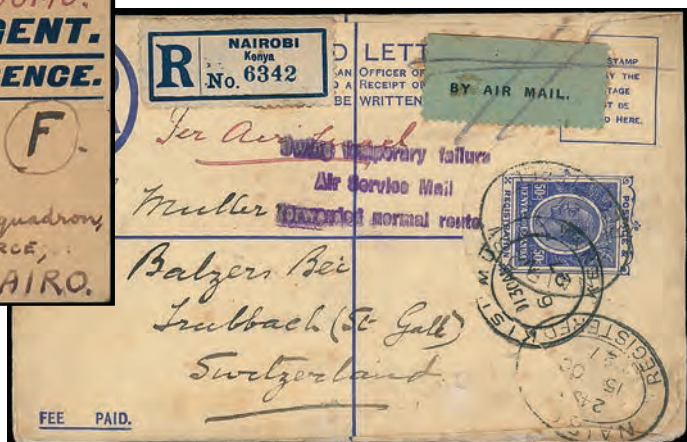 GENT.
ENCE.
F
quadron,
RCE,
AIRO.
R
NAIROBI
Kenya
No. 6342
D LETT
AN OFFICER OF
D A RECEIPT OF
BE WRITTEN
BY AIR MAIL.
STAMP
THE
TAGE
BE
D HERE.
Per Air
temporary failure
Air Service Mail
forwarded normal route
Muller
Balzers Bei
Trubbach (St Gall)
Switzerland
FEE PAID.
POSTAGE
REGISTRATION
KISUMU
REGISTERED
15 OC